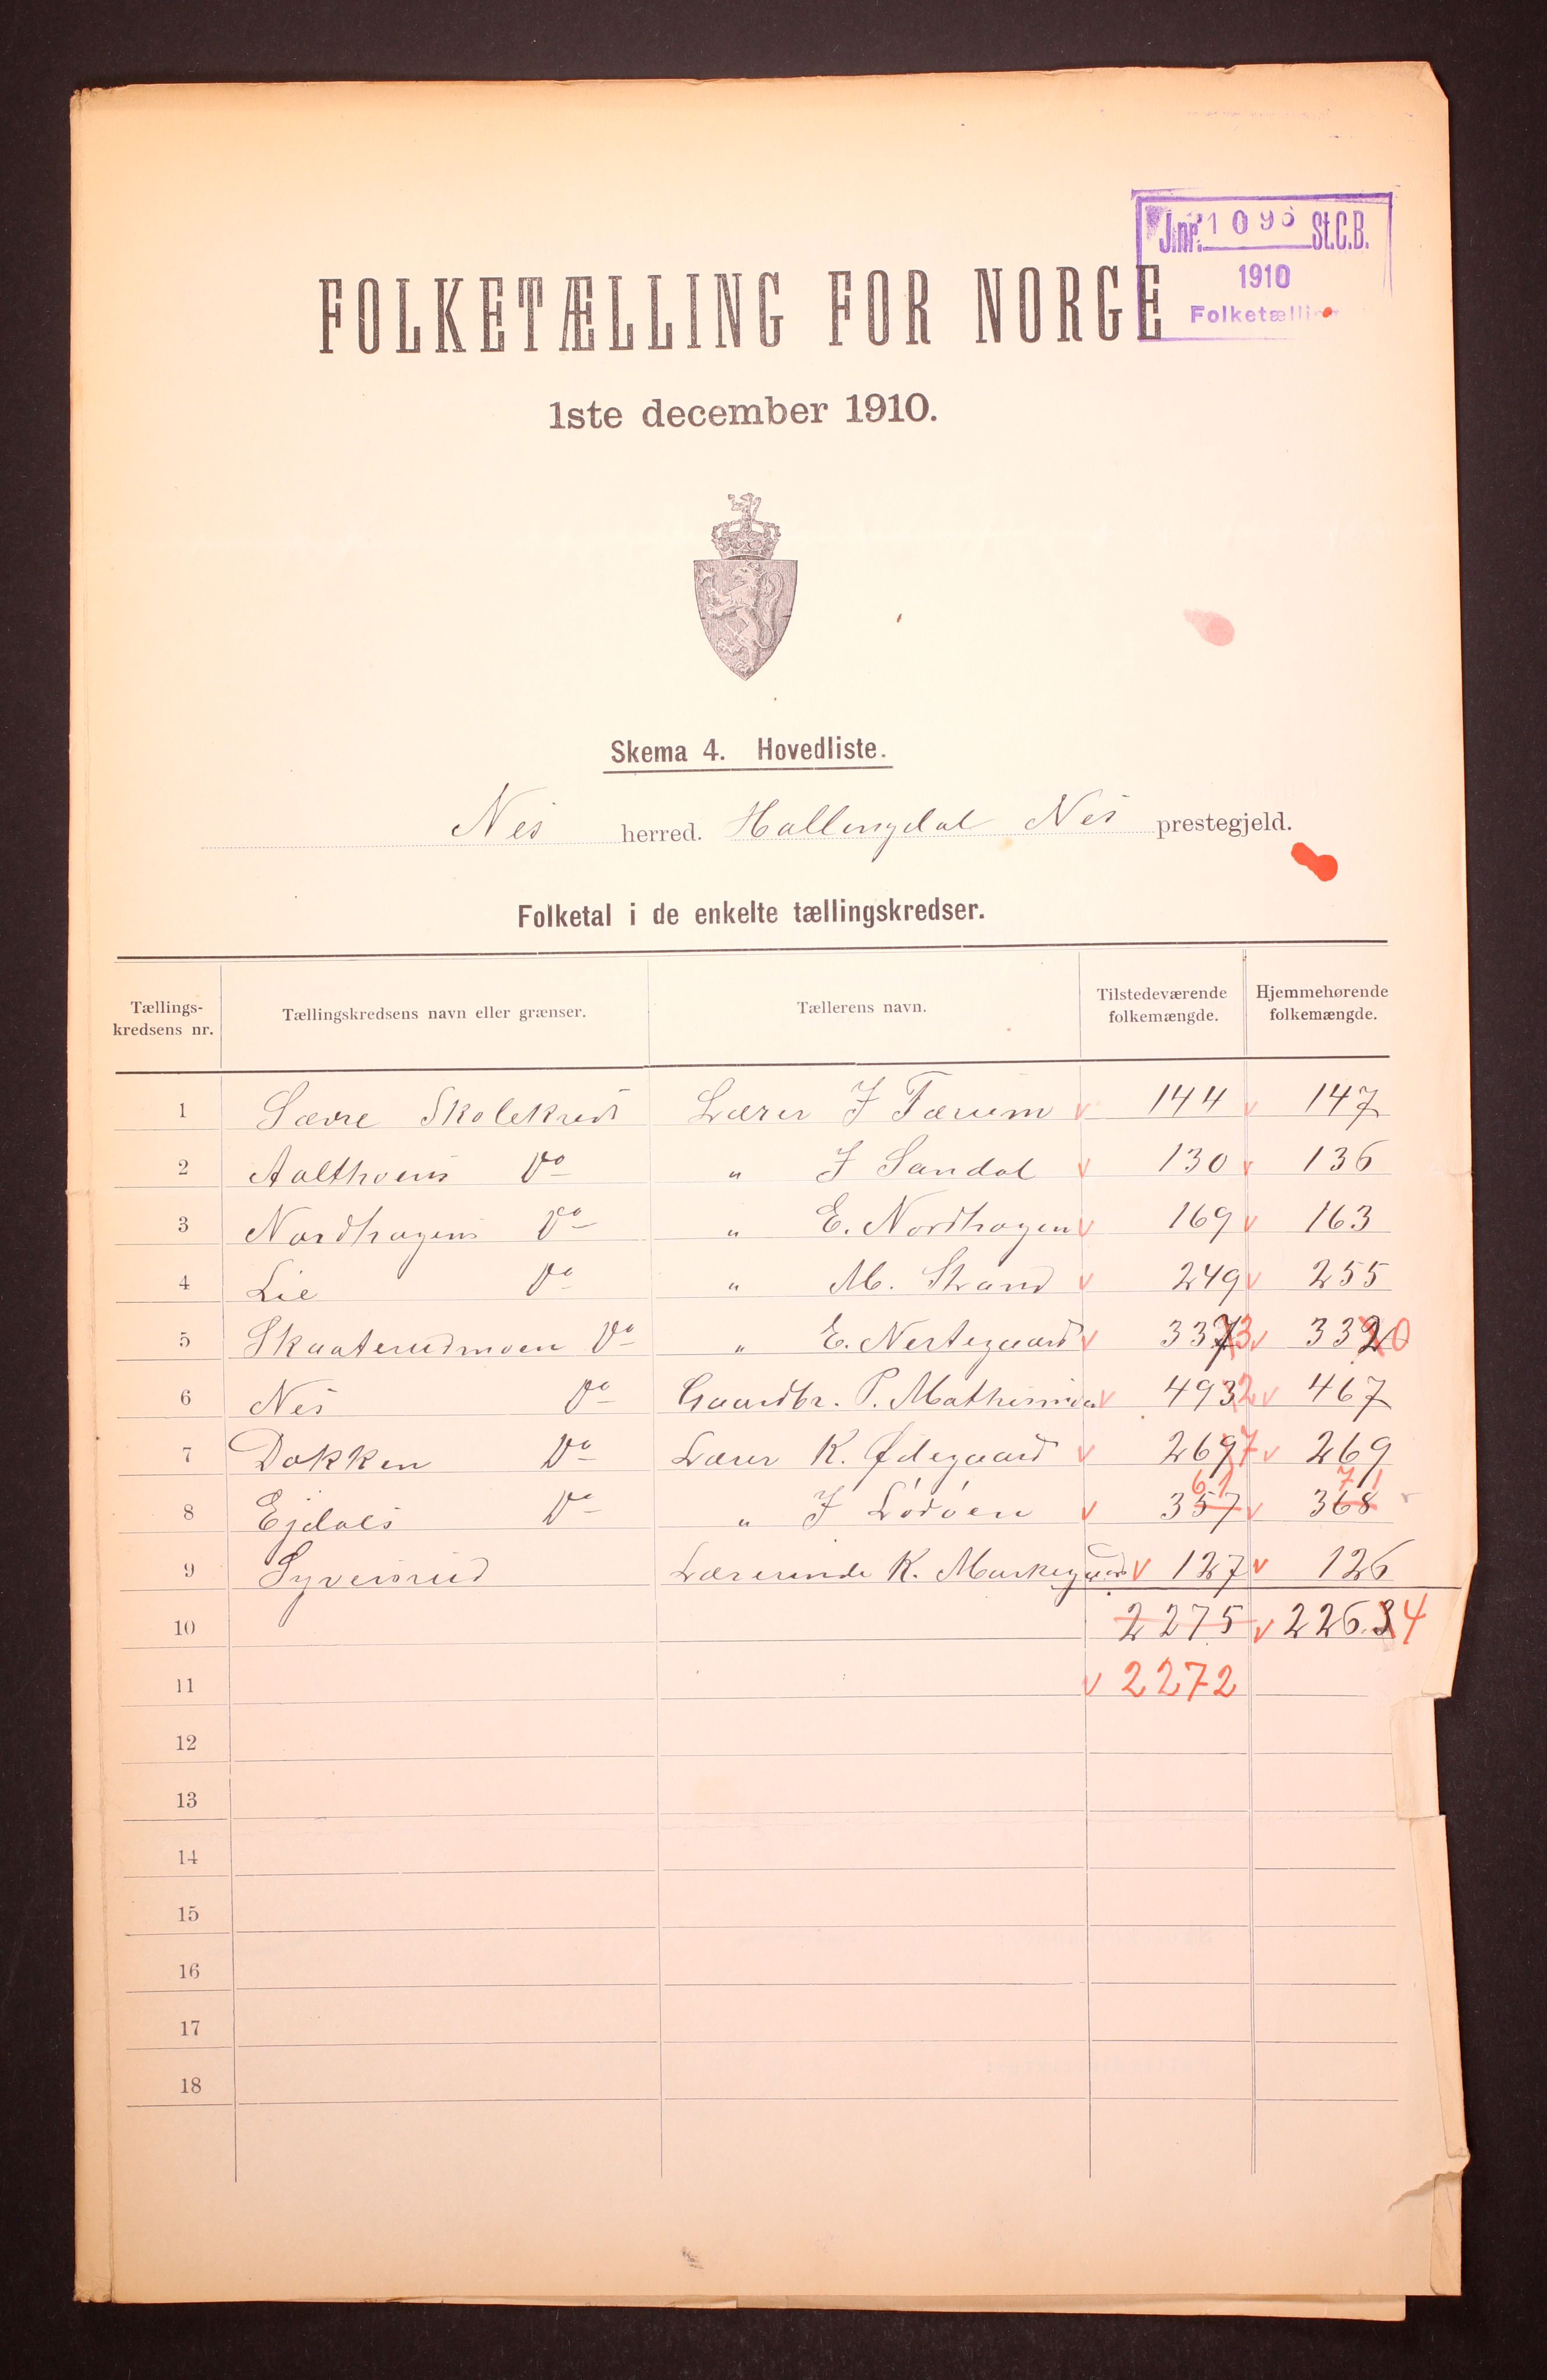 J.nr. 1096 St.C.B.
1910
Folketælling
FOLKETÆLLING FOR NORGE
1ste december 1910.
Skema 4. Hovedliste.
Nes herred. Hallingdal Nes prestegjeld.
Folketal i de enkelte tællingskredser.
Tællings-kredsens nr. Tællingskredsens navn eller grænser. Tællerens navn. Tilstedeværende folkemængde. Hjemmehørende folkemængde.
1 Sævre Skolekreds Lærer J Tærum v 144 v 147
2 Aalthoens Do " J Sandal v 130 v 136
3 Nordhagens Do " E. Nordhagen v 169 v 163
4 Lie Do " M. Strand v 249 v 255
5 Skaaterudmoen Do " E. Nertegaard v 3373 v 3320
6 Nes Do Gaardbr. P. Mathisen v 4932 v 467
7 Dokken Do Lærer K. Ødegaard v 2697 v 269
61 71
8 Ejdals Do " J Lødøen v 357 v 368
9 Syversrud Lærerinde K. Markegaard v 127 v 126
10 2275 v 22634
11 v 2272
12
13
14
15
16
17
18